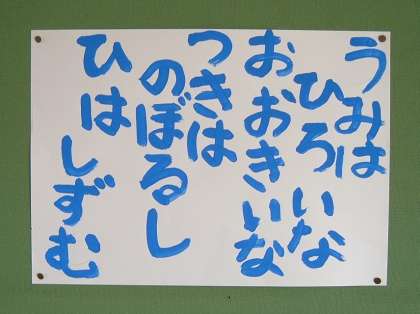 うみは
ひろいな
おおきいな
つきは
のぼるし
ひは
しずむ